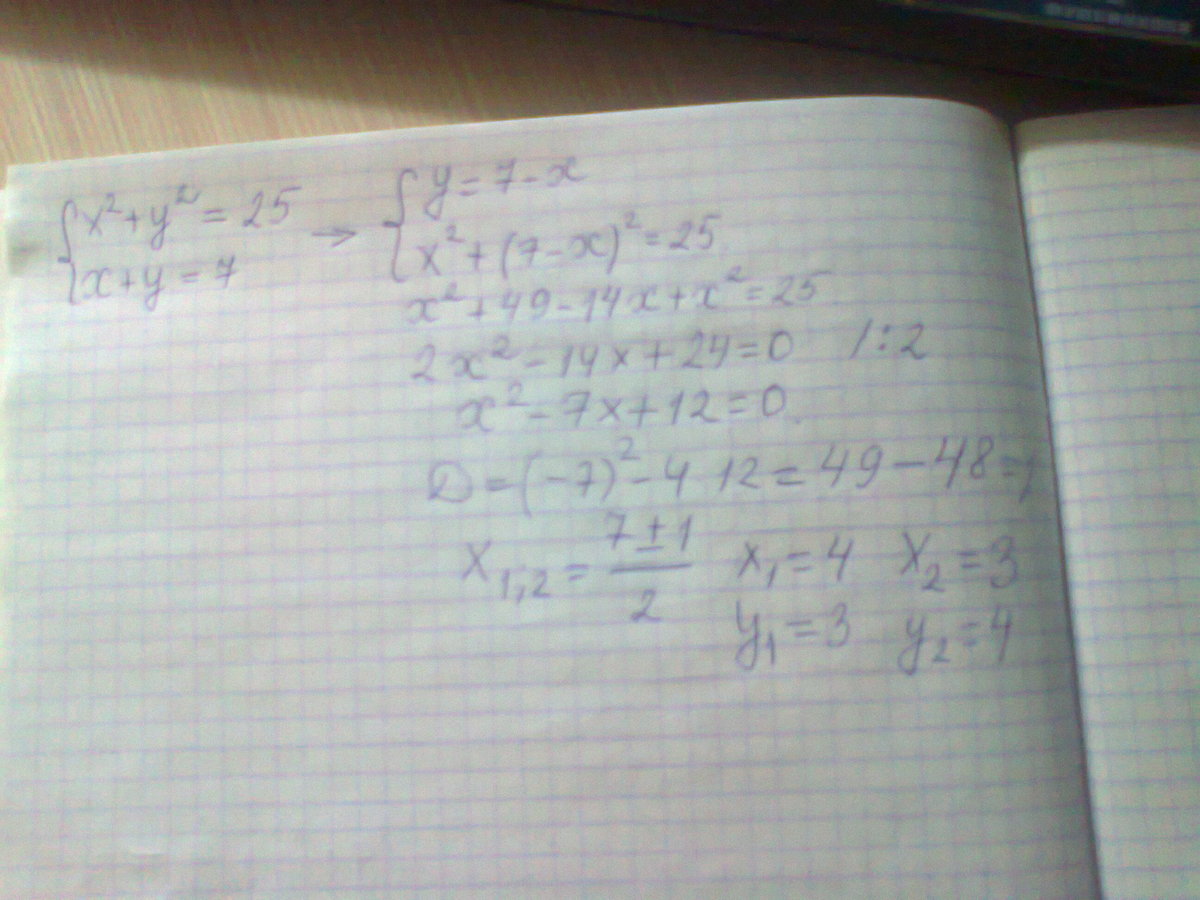 {x²+y²=25 → {y=7-x
{x+y=7 {x²+(7-x)²=25
x²+49-14x+x²=25
2x²-14x+24=0 /:2
x²-7x+12=0
D=(-7)²-4 12=49-48=1
x₁,₂=(7±1)/2 x₁=4 x₂=3
y₁=3 y₂=4